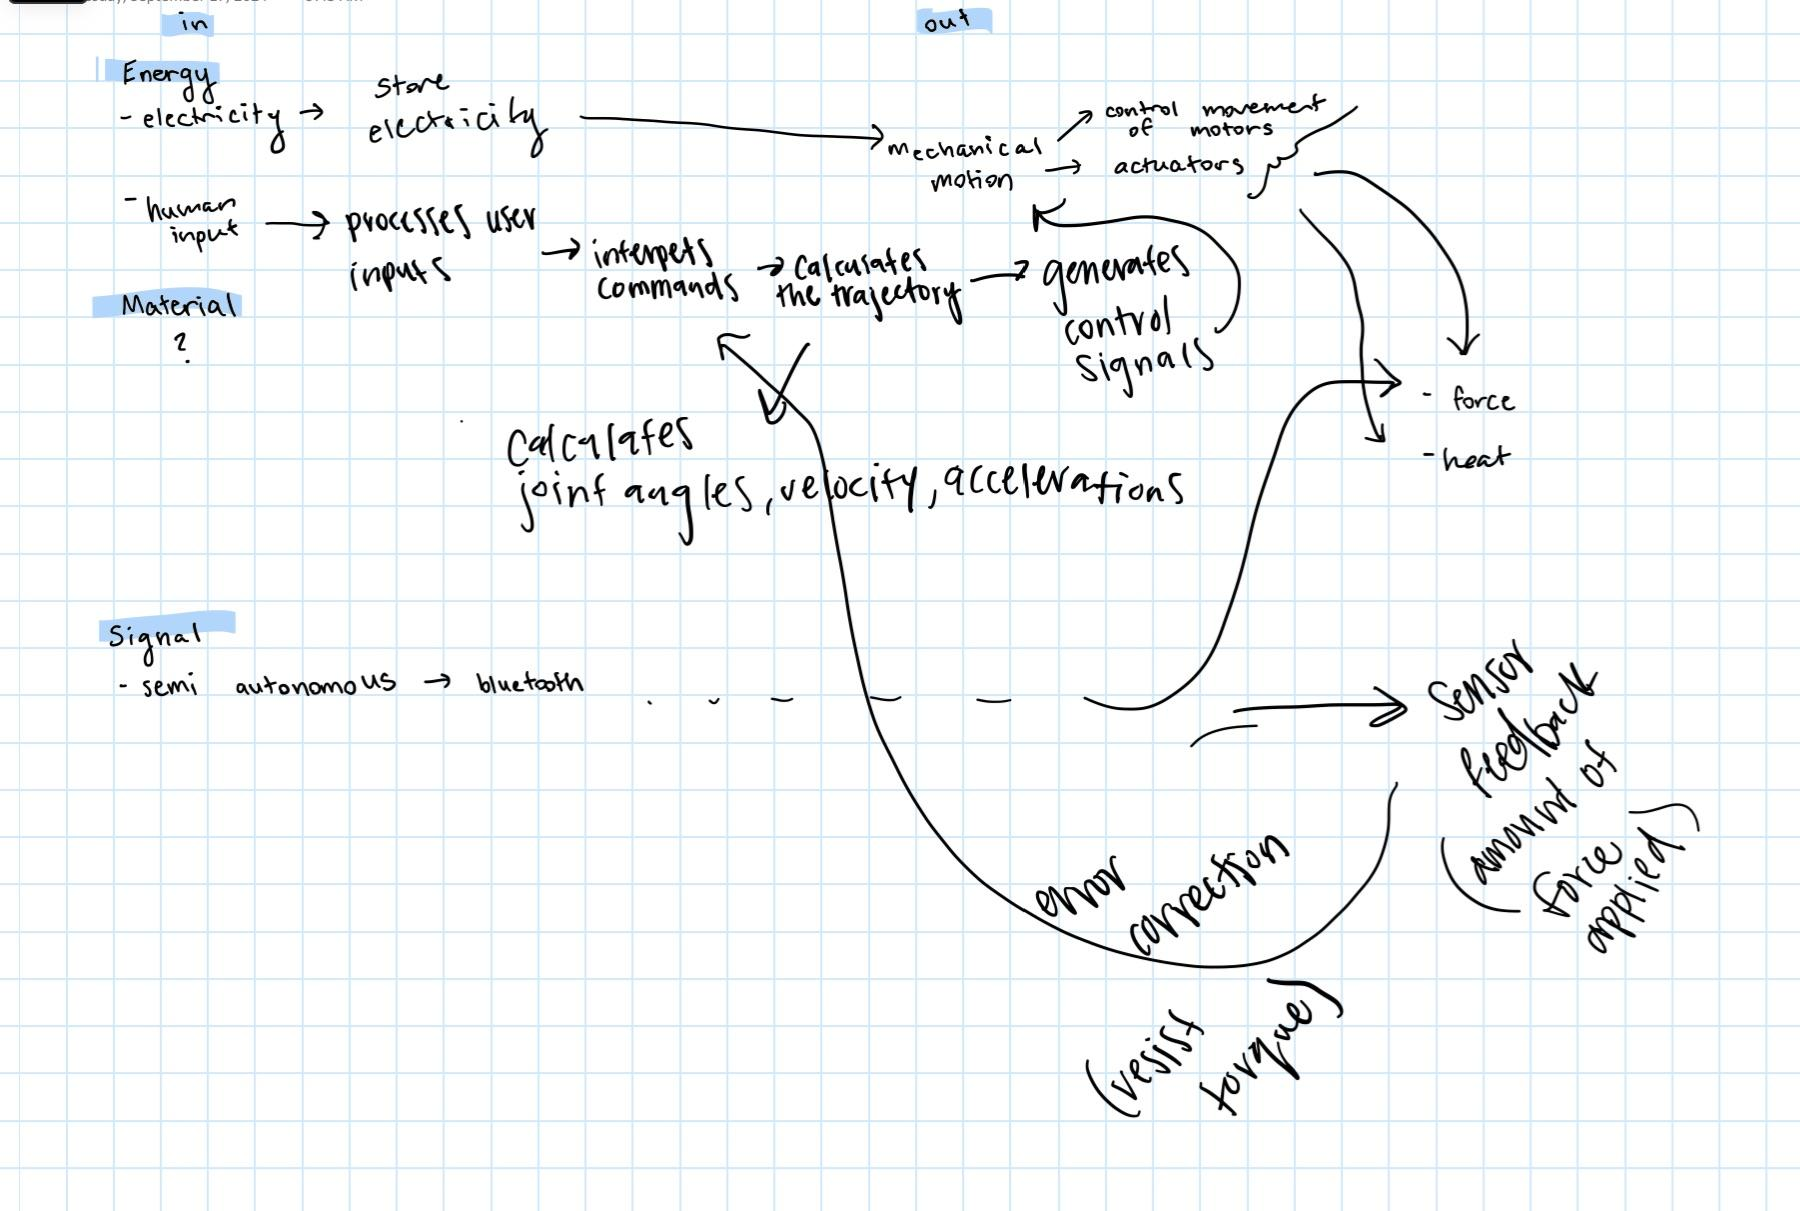 in
out
Energy
- electricity → store
electricity
mechanical
motion
→ control movement
of motors
→ actuators
- human
input
→ processes user
inputs
→ interpets
commands
→ calculates
the trajectory
→ generates
control
signals
Material
?
- force
- heat
calculates
joint angles, velocity, accelerations
Signal
- semi autonomous → bluetooth
sensor
feedback
(amount of
force
applied)
error
correction
(resist
torque)